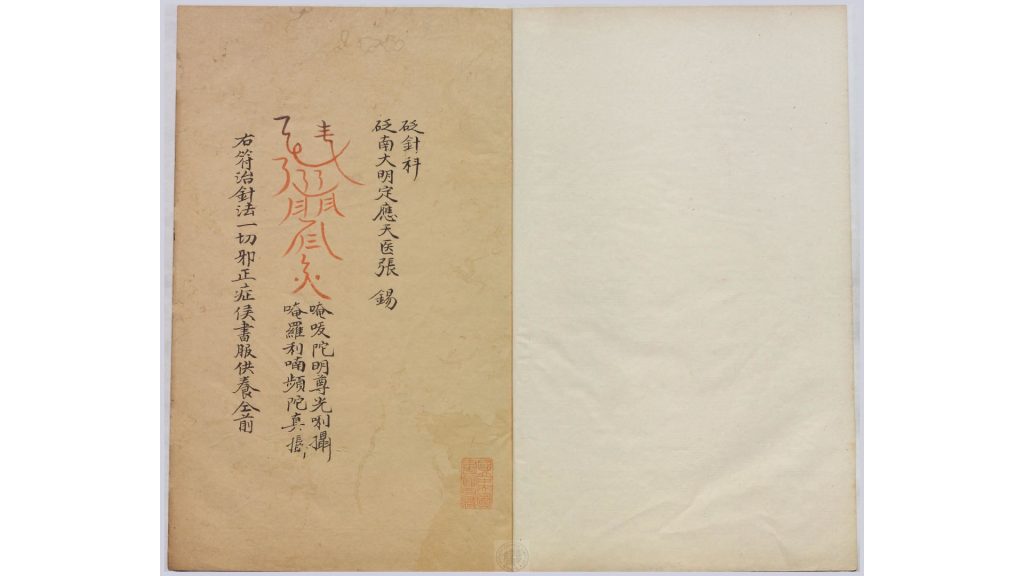 砭針科
砭南大明定應天医張 錫
唵吺陀明尊光唎攝
唵羅利喃頻陀真攝
右符治針法一切邪正症侯書服供養仝前